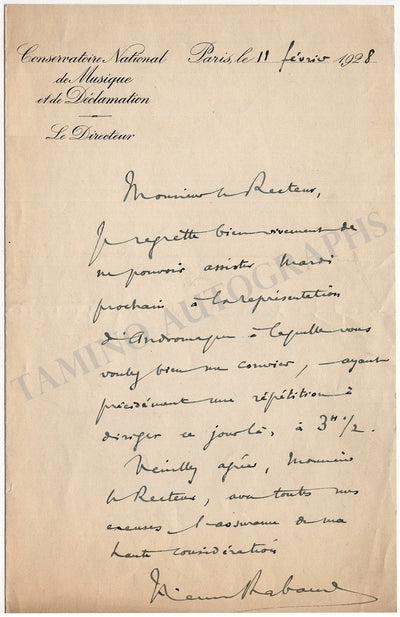 Conservatoire National
de Musique
et de Déclamation
Le Directeur
Paris, le 11 février 1928
Monsieur le Recteur,
Je regrette bien vivement de
ne pouvoir assister Mardi
prochain à la représentation
d'Andromaque à laquelle vous
voulez bien me convier, - ayant
précisément une répétition à
diriger ce jour là, à 3H 1/2.
Veuillez agréer, Monsieur
le Recteur, avec toutes mes
excuses l'assurance de ma
haute considération
Henri Rabaud
TAMINO AUTOGRAPHS